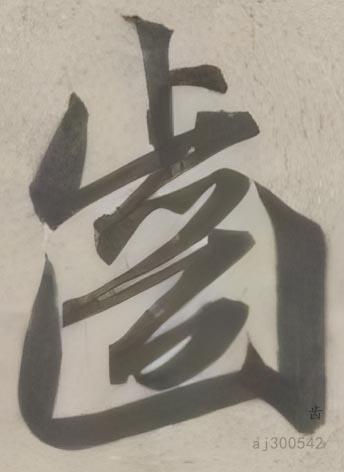 齒
齿
aj300542